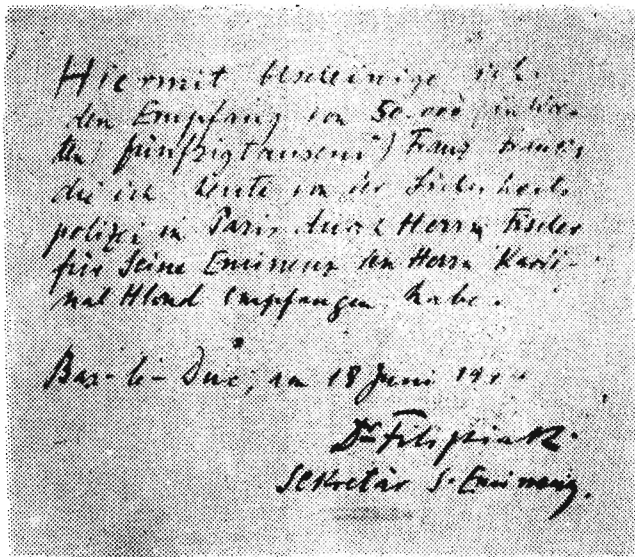 Hiermit bescheinige ich
den Empfang von 50.000 (in Wor-
ten) fünfzigtausend) Franz
die ich heute von der Sicherheits
polizei in Paris durch Herrn Fischer
für Seine Eminenz den Herrn Kardi-
nal Hlond empfangen habe.
Bar-le-Duc, am 18 Juni 194
Dr Filipiak
Sekretär S. Eminenz.